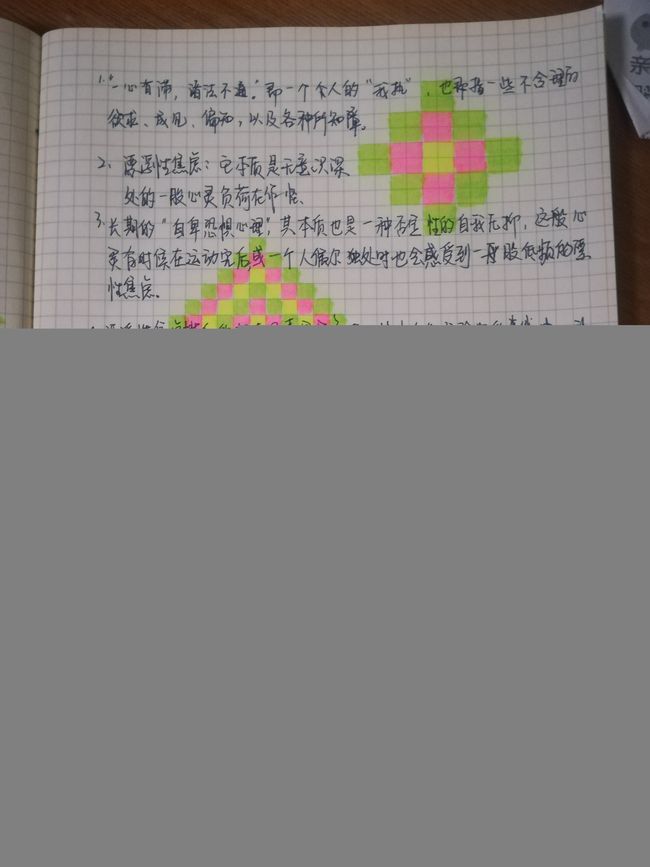 1."一心有滞,诸法不通。"即一个个人的"我执",也即指一些不合理的
欲求、成见、偏知,以及各种所知障。
2、漂浮性焦虑:它本质是无意识深
处的一股心灵负荷在作怪、
3.长期的"自卑恐惧心理",其本质也是一种否定性的自我无抑,这般心
灵有时候在运动完后或一个人偶尔独处时也会感受到一般股低频的漂
性焦虑。
亲